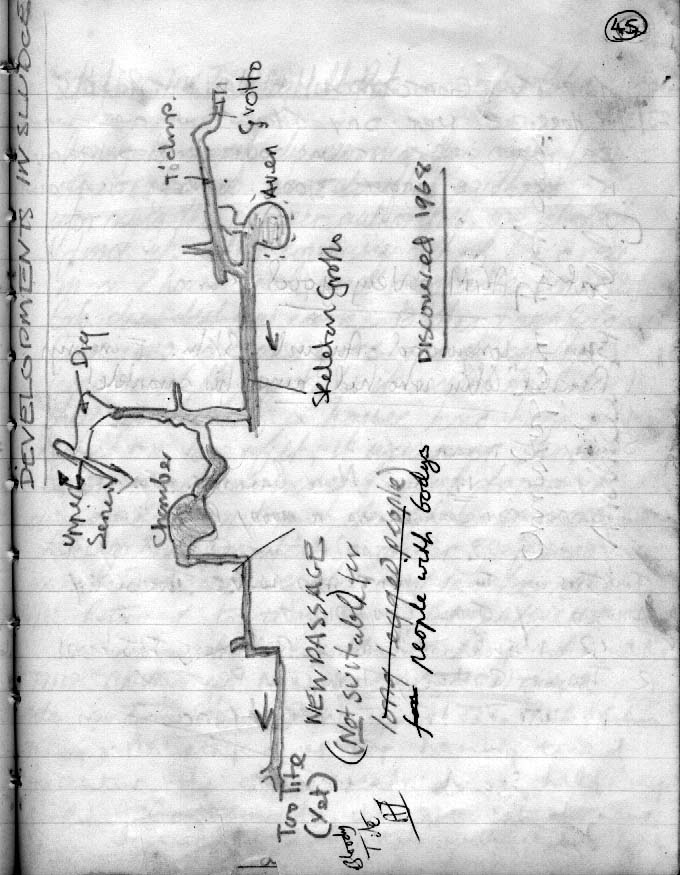 45
DEVELOPMENTS IN SLUDGE
Upper
Series
Dig
Chamber
T'chmp.
Aven Grotto
Skeleton Grotto
DISCOVERED 1968
NEW PASSAGE
(Not suitable for
long legged people)
for people with bodys
Too Tite
(Yet)
Bloody
Tite